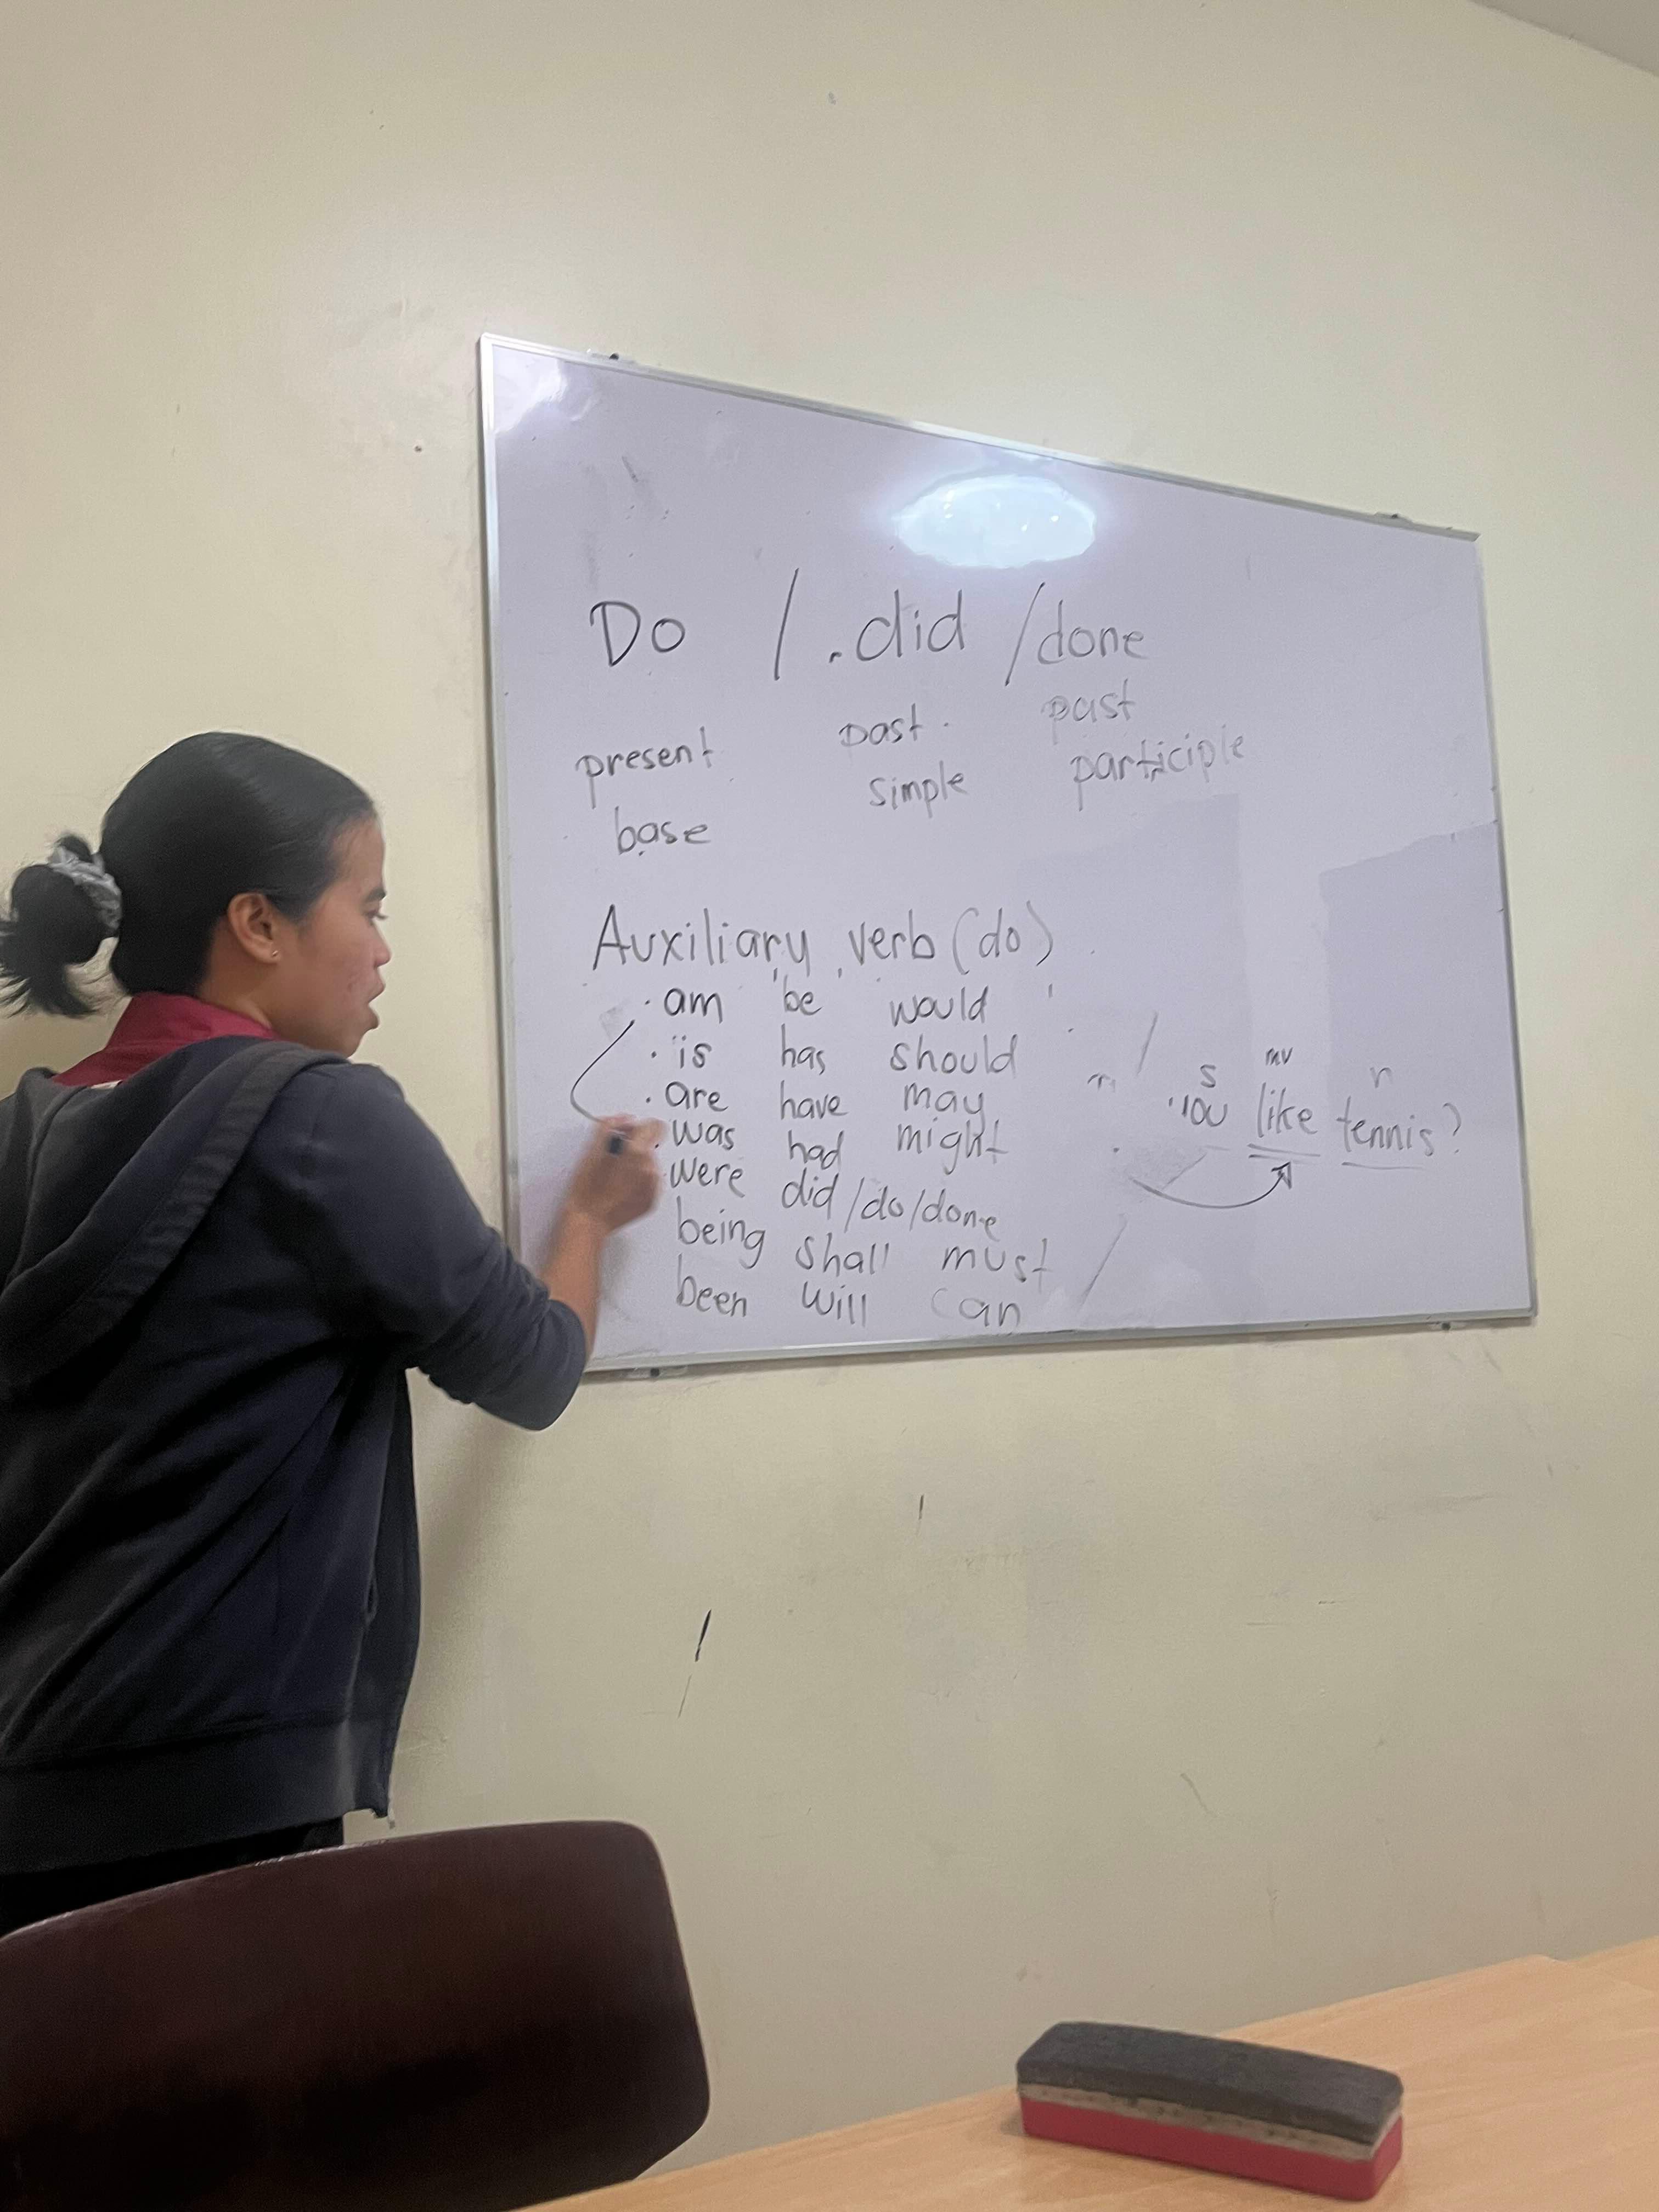 Do / .did / done
present past past
base simple participle
Auxiliary verb (do)
· am be would
· is has should
· are have may
· was had might
were did/do/done
being shall must
been will can
s mv n
like tennis?